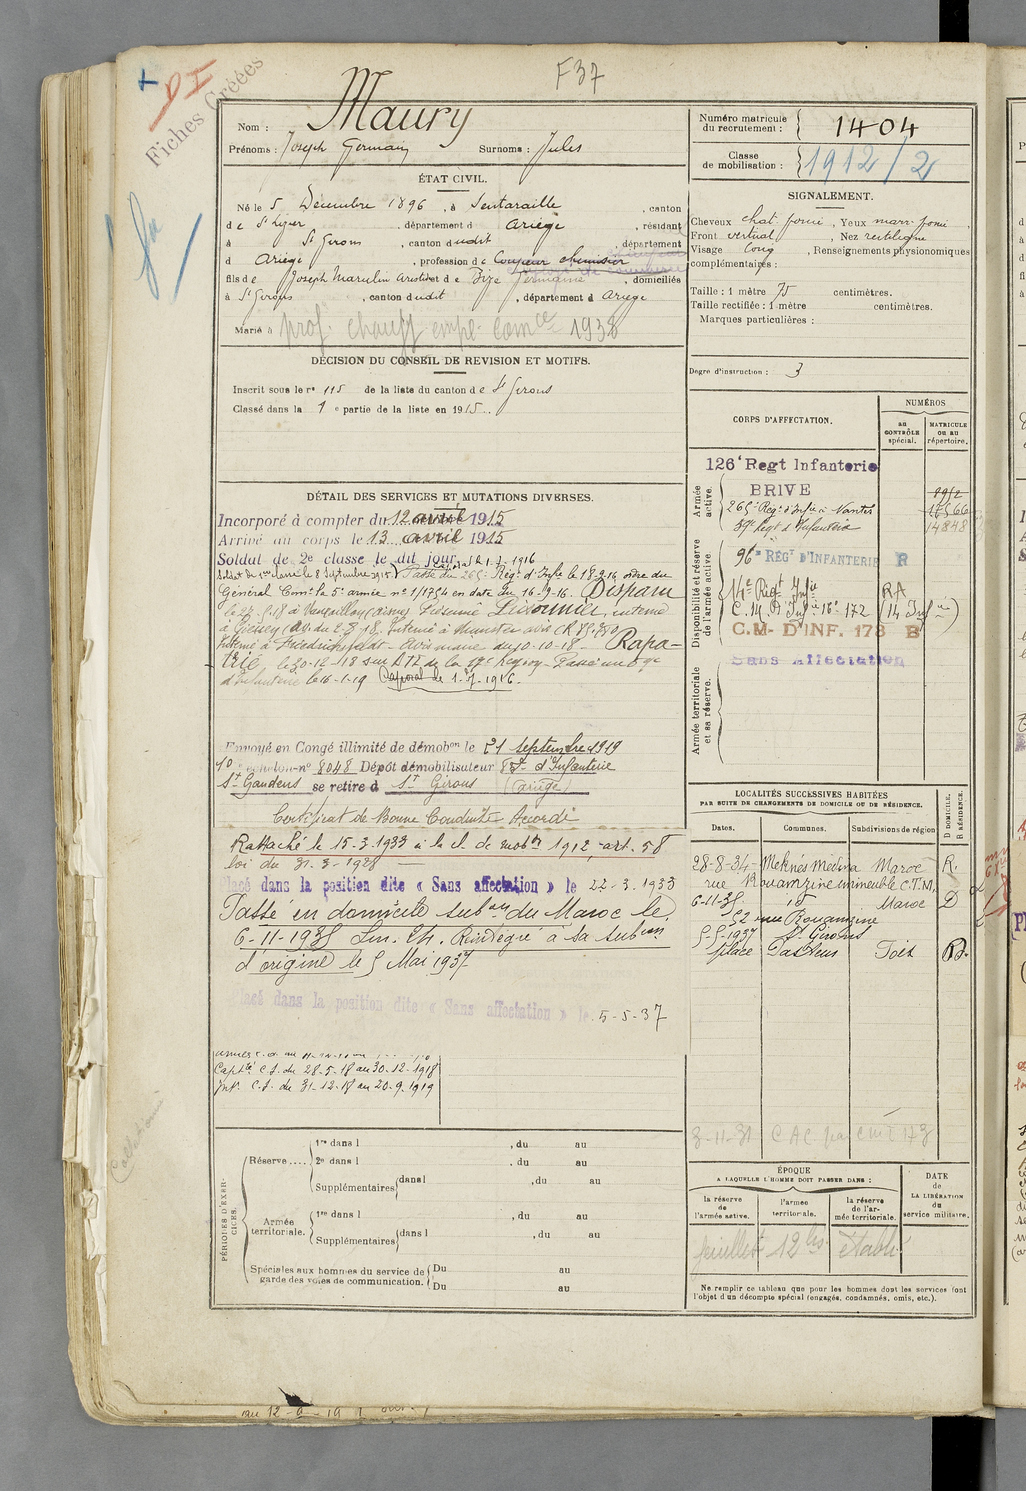 F37
DI
Fiches Créées
Nom : Maury
Prénoms : Joseph Germain Surnoms : Jules
Numéro matricule du recrutement : 1404
Classe de mobilisation : 1912/2
ÉTAT CIVIL.
Né le 5 Décembre 1896, à Sentaraille, canton
de St Lizier, département d Ariège, résidant
à St Girons, canton dudit, département
d Ariège, profession de Coupeur chemisier
fils de Joseph Marcelin Aristide et de Bize Germaine, domiciliés
à St Girons, canton dudit, département d Ariège
Marié à
prof. chauff empl. Comce 1938
SIGNALEMENT.
Cheveux chat. foncé, Yeux marr. foncé,
Front vertical, Nez rectiligne
Visage long, Renseignements physionomiques
complémentaires :
Taille : 1 mètre 75 centimètres.
Taille rectifiée : 1 mètre centimètres.
Marques particulières :
Degré d'instruction : 3
DÉCISION DU CONSEIL DE REVISION ET MOTIFS.
Inscrit sous le n° 115 de la liste du canton de St Girons
Classé dans la 1e partie de la liste en 1915.
DÉTAIL DES SERVICES ET MUTATIONS DIVERSES.
Incorporé à compter du 12 avril 1915
Arrivé au corps le 13 avril 1915
Soldat de 2e classe le dit jour
Soldat de 1ère classe le 8 Septembre 1915 Passé du 265e Régt d'Infie le 18-9-16, ordre du
Général Comt la 5e armée n° 1/1754 en date du 16-9-16. Disparu
le 27-5-18 à Vauxaillon (Aisne) Présumé Prisonnier, interné
à Giessen (av. du 2-8-18. Interné à Munster avis CR
Interné à Friedrichsfeld - Avis mane du 10-10-18 - Rapa-
trié le 30-12-18 son DTI de la 17e région - Passé au
d'Infanterie le 16-1-19 Caporal le 1-7-1916.
Envoyé en Congé illimité de démobon le 21 septembre 1919
échelon n° 8048 Dépôt démobilisateur 83e d'Infanterie
St Gaudens se retire à St Girons (Ariège)
Certificat de Bonne Conduite Accordé
Rattaché le 15-3-1933 à la cl. de mobon 1912, art. 58
loi du 31-3-1928
Placé dans la position dite « Sans affectation » le 22-3-1933
Passé en domicile subon du Maroc le
6-11-1935 Réintégré à sa subon
d'origine le 5 Mai 1937
Placé dans la position dite « Sans affectation » le 5-5-37
Capté C.S. du 28-5-18 au 30-12-1918
Int. C.S. du 31-12-18 au 20-9-1919
CORPS D'AFFECTATION.
NUMÉROS
au CONTRÔLE spécial.
MATRICULE ou au répertoire.
Armée active.
126e Regt Infanterie
BRIVE
265e Régt d'Infie à Nantes 17566
Régt d'Infanterie 14848
Disponibilité et réserve de l'armée active
96e RÉGT D'INFANTERIE R
14e Régt Infie RA
C. M. d'Infie 16e 172 (14 Infie)
C.M- D'INF. 173 B
Sans Affectation
Armée territoriale et sa réserve.
LOCALITÉS SUCCESSIVES HABITÉES
PAR SUITE DE CHANGEMENTS DE DOMICILE OU DE RÉSIDENCE.
Dates. Communes. Subdivisions de région
D DOMICILE. R RÉSIDENCE.
28-8-34 Meknès Médina Maroc R.
rue Rouamzine immeuble C.T.M.
6-11-35 id Maroc D
52 rue Rouamzine
5-5-1937 St Girons
place Pasteur Foix
3-11-31 CAC
PÉRIODES D'EXERCICES.
Réserve.... 1re dans l , du au
2e dans l , du au
Supplémentaires dans l , du au
Armée territoriale. 1re dans l , du au
Supplémentaires dans l , du au
Spéciales aux hommes du service de garde des voies de communication. Du au
Du au
ÉPOQUE
A LAQUELLE L'HOMME DOIT PASSER DANS :
la réserve de l'armée active.
l'armée territoriale.
la réserve de l'armée territoriale.
DATE de LA LIBÉRATION du service militaire.
feuillet 12 bis établi
Ne remplir ce tableau que pour les hommes dont les services font l'objet d'un décompte spécial (engagés, condamnés, omis, etc.).